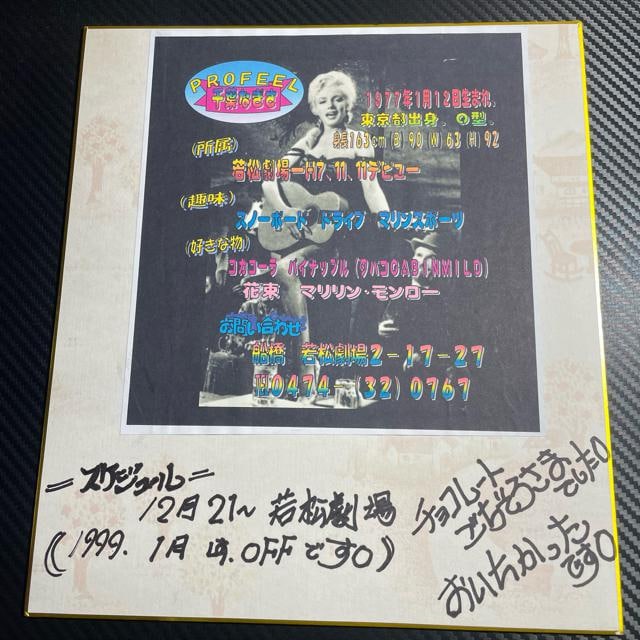 PROFEEL
千葉なぎさ
1977年1月12日生まれ。
東京都出身。O型。
身長163cm (B) 90 (W) 63 (H) 92
(所属)
若松劇場—H7、11、11デビュー
(趣味)
スノーボード ドライブ マリンスポーツ
(好きな物)
コカコーラ パイナップル (タバコCABINMILD)
花束 マリリン・モンロー
お問い合わせ
船橋 若松劇場2-17-27
℡0474-(32)0767
=スケジュール=
12月21~ 若松劇場
(1999. 1月 は. OFFです。)
チョコレート
ごちそうさまでした。
おいちかったです。